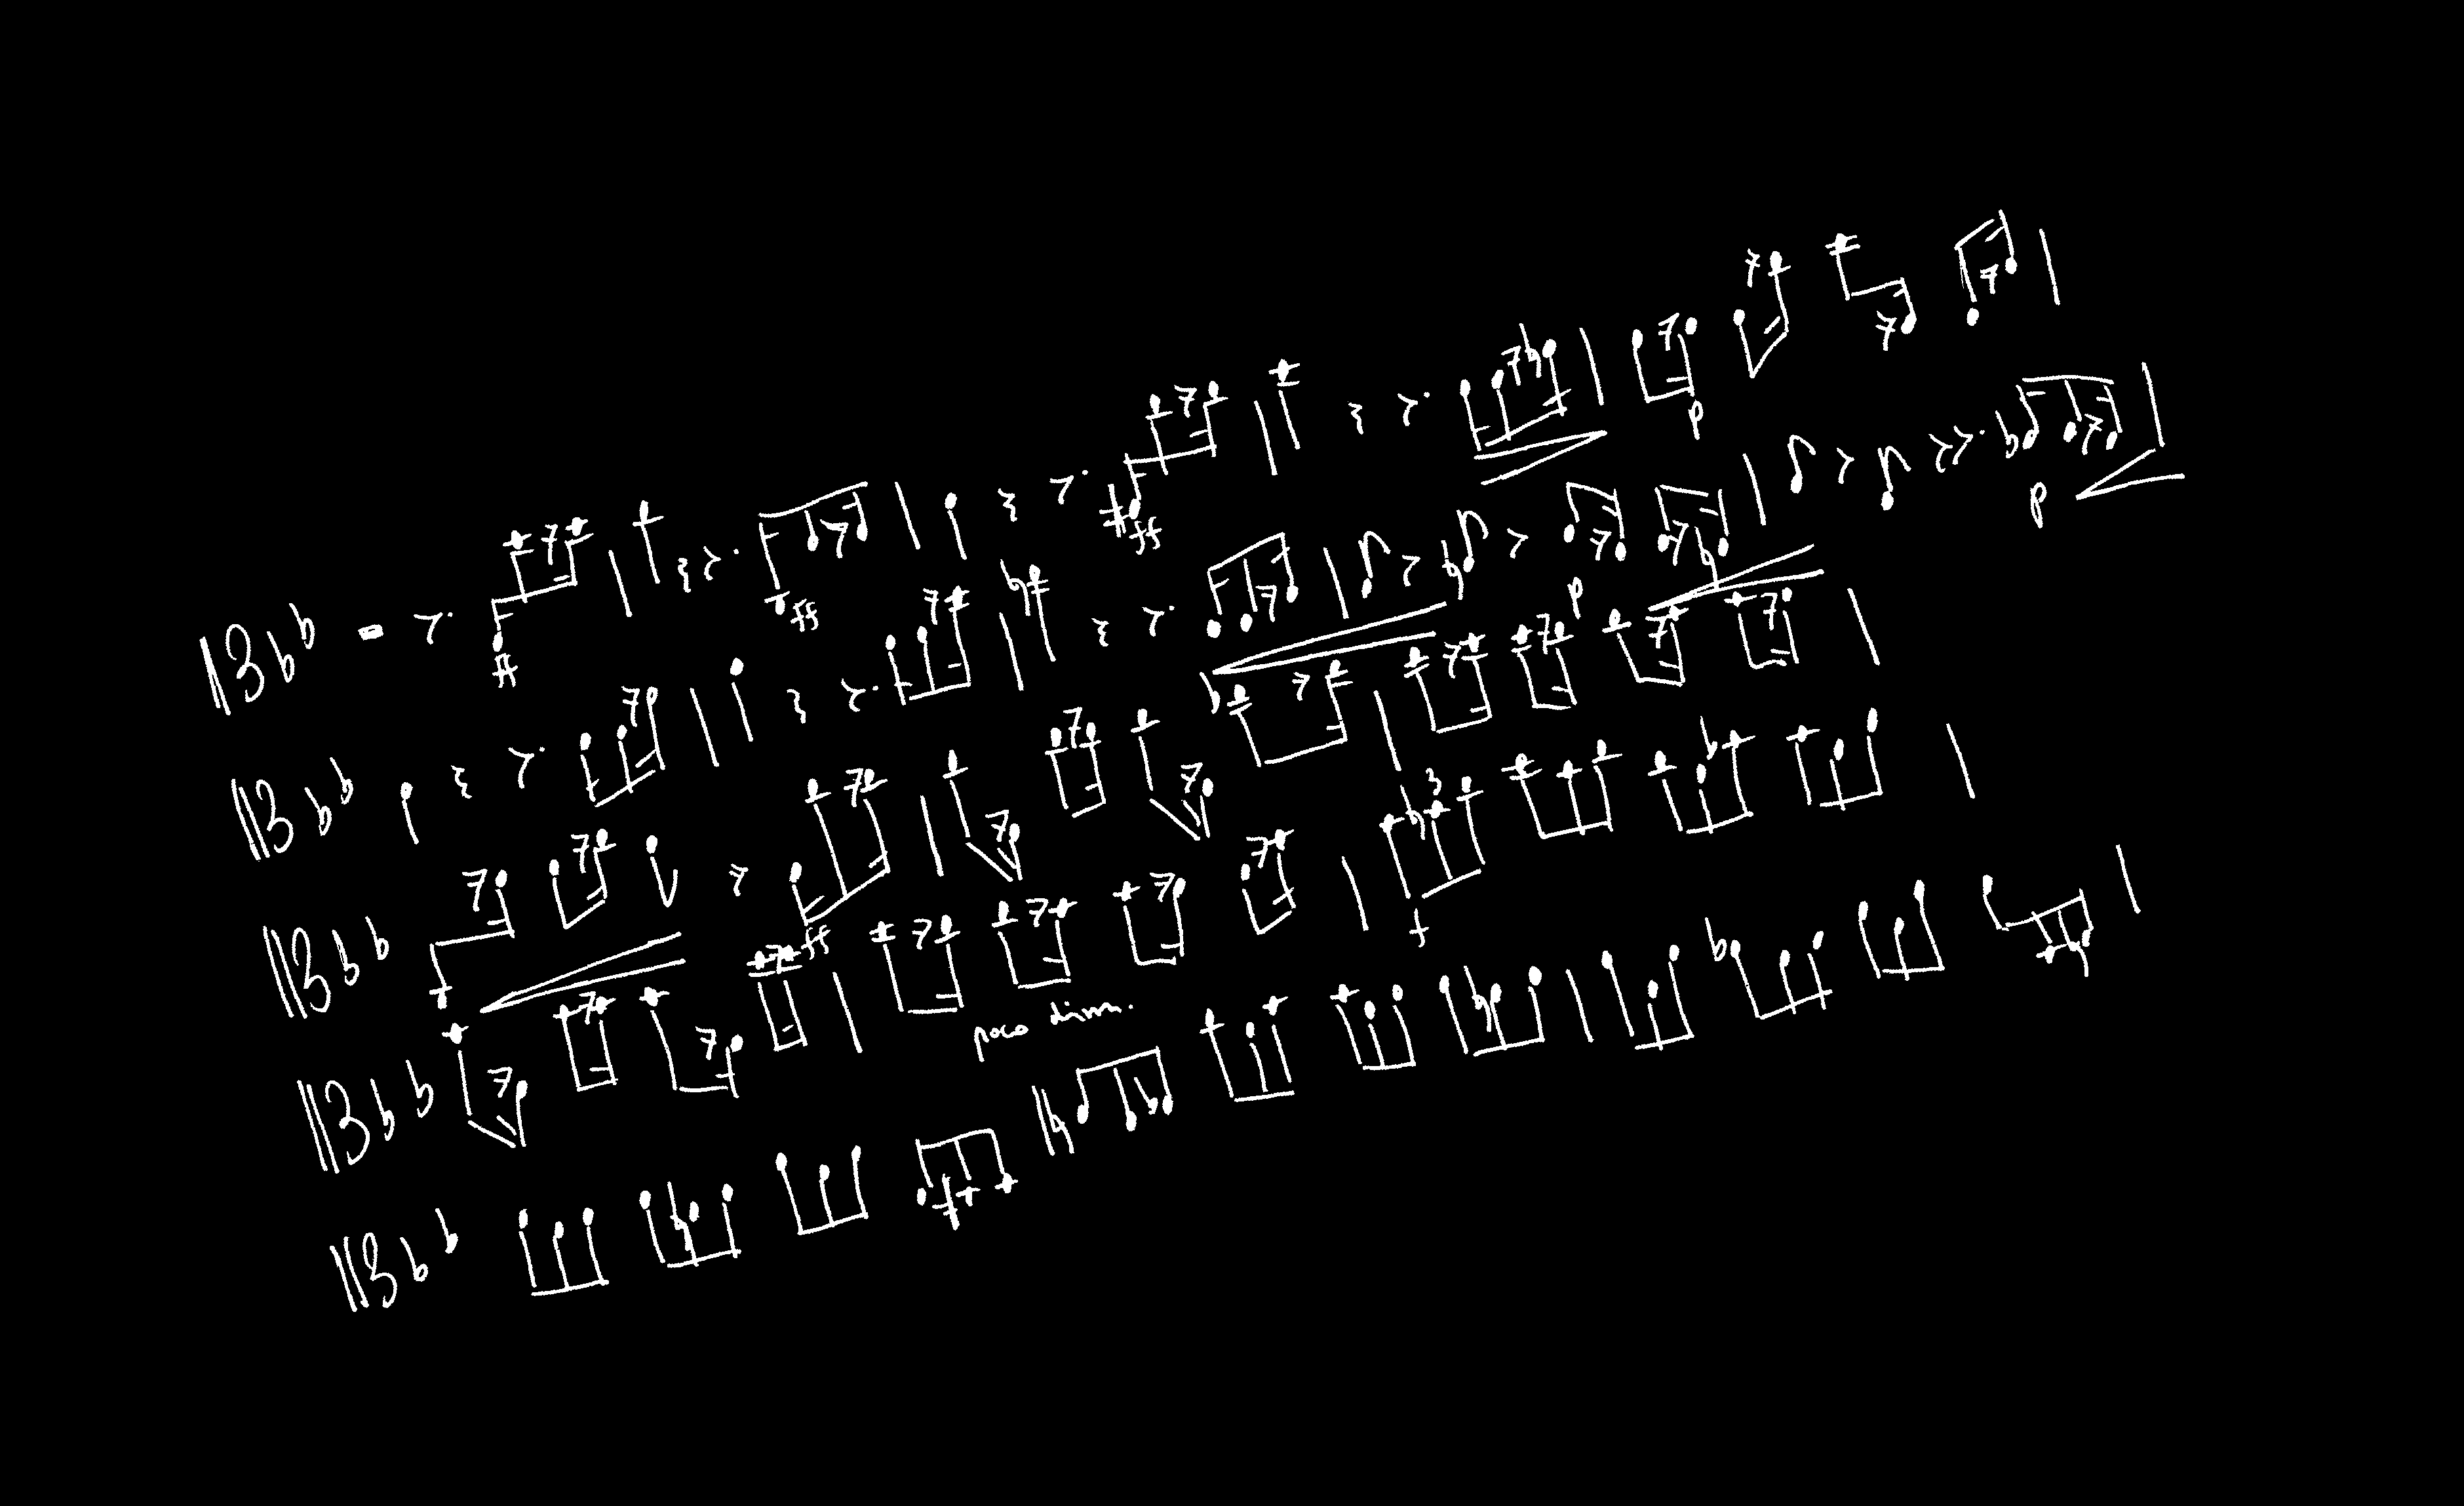 ff
ff
ff
p
p
p
ff
3
f
poco dim.